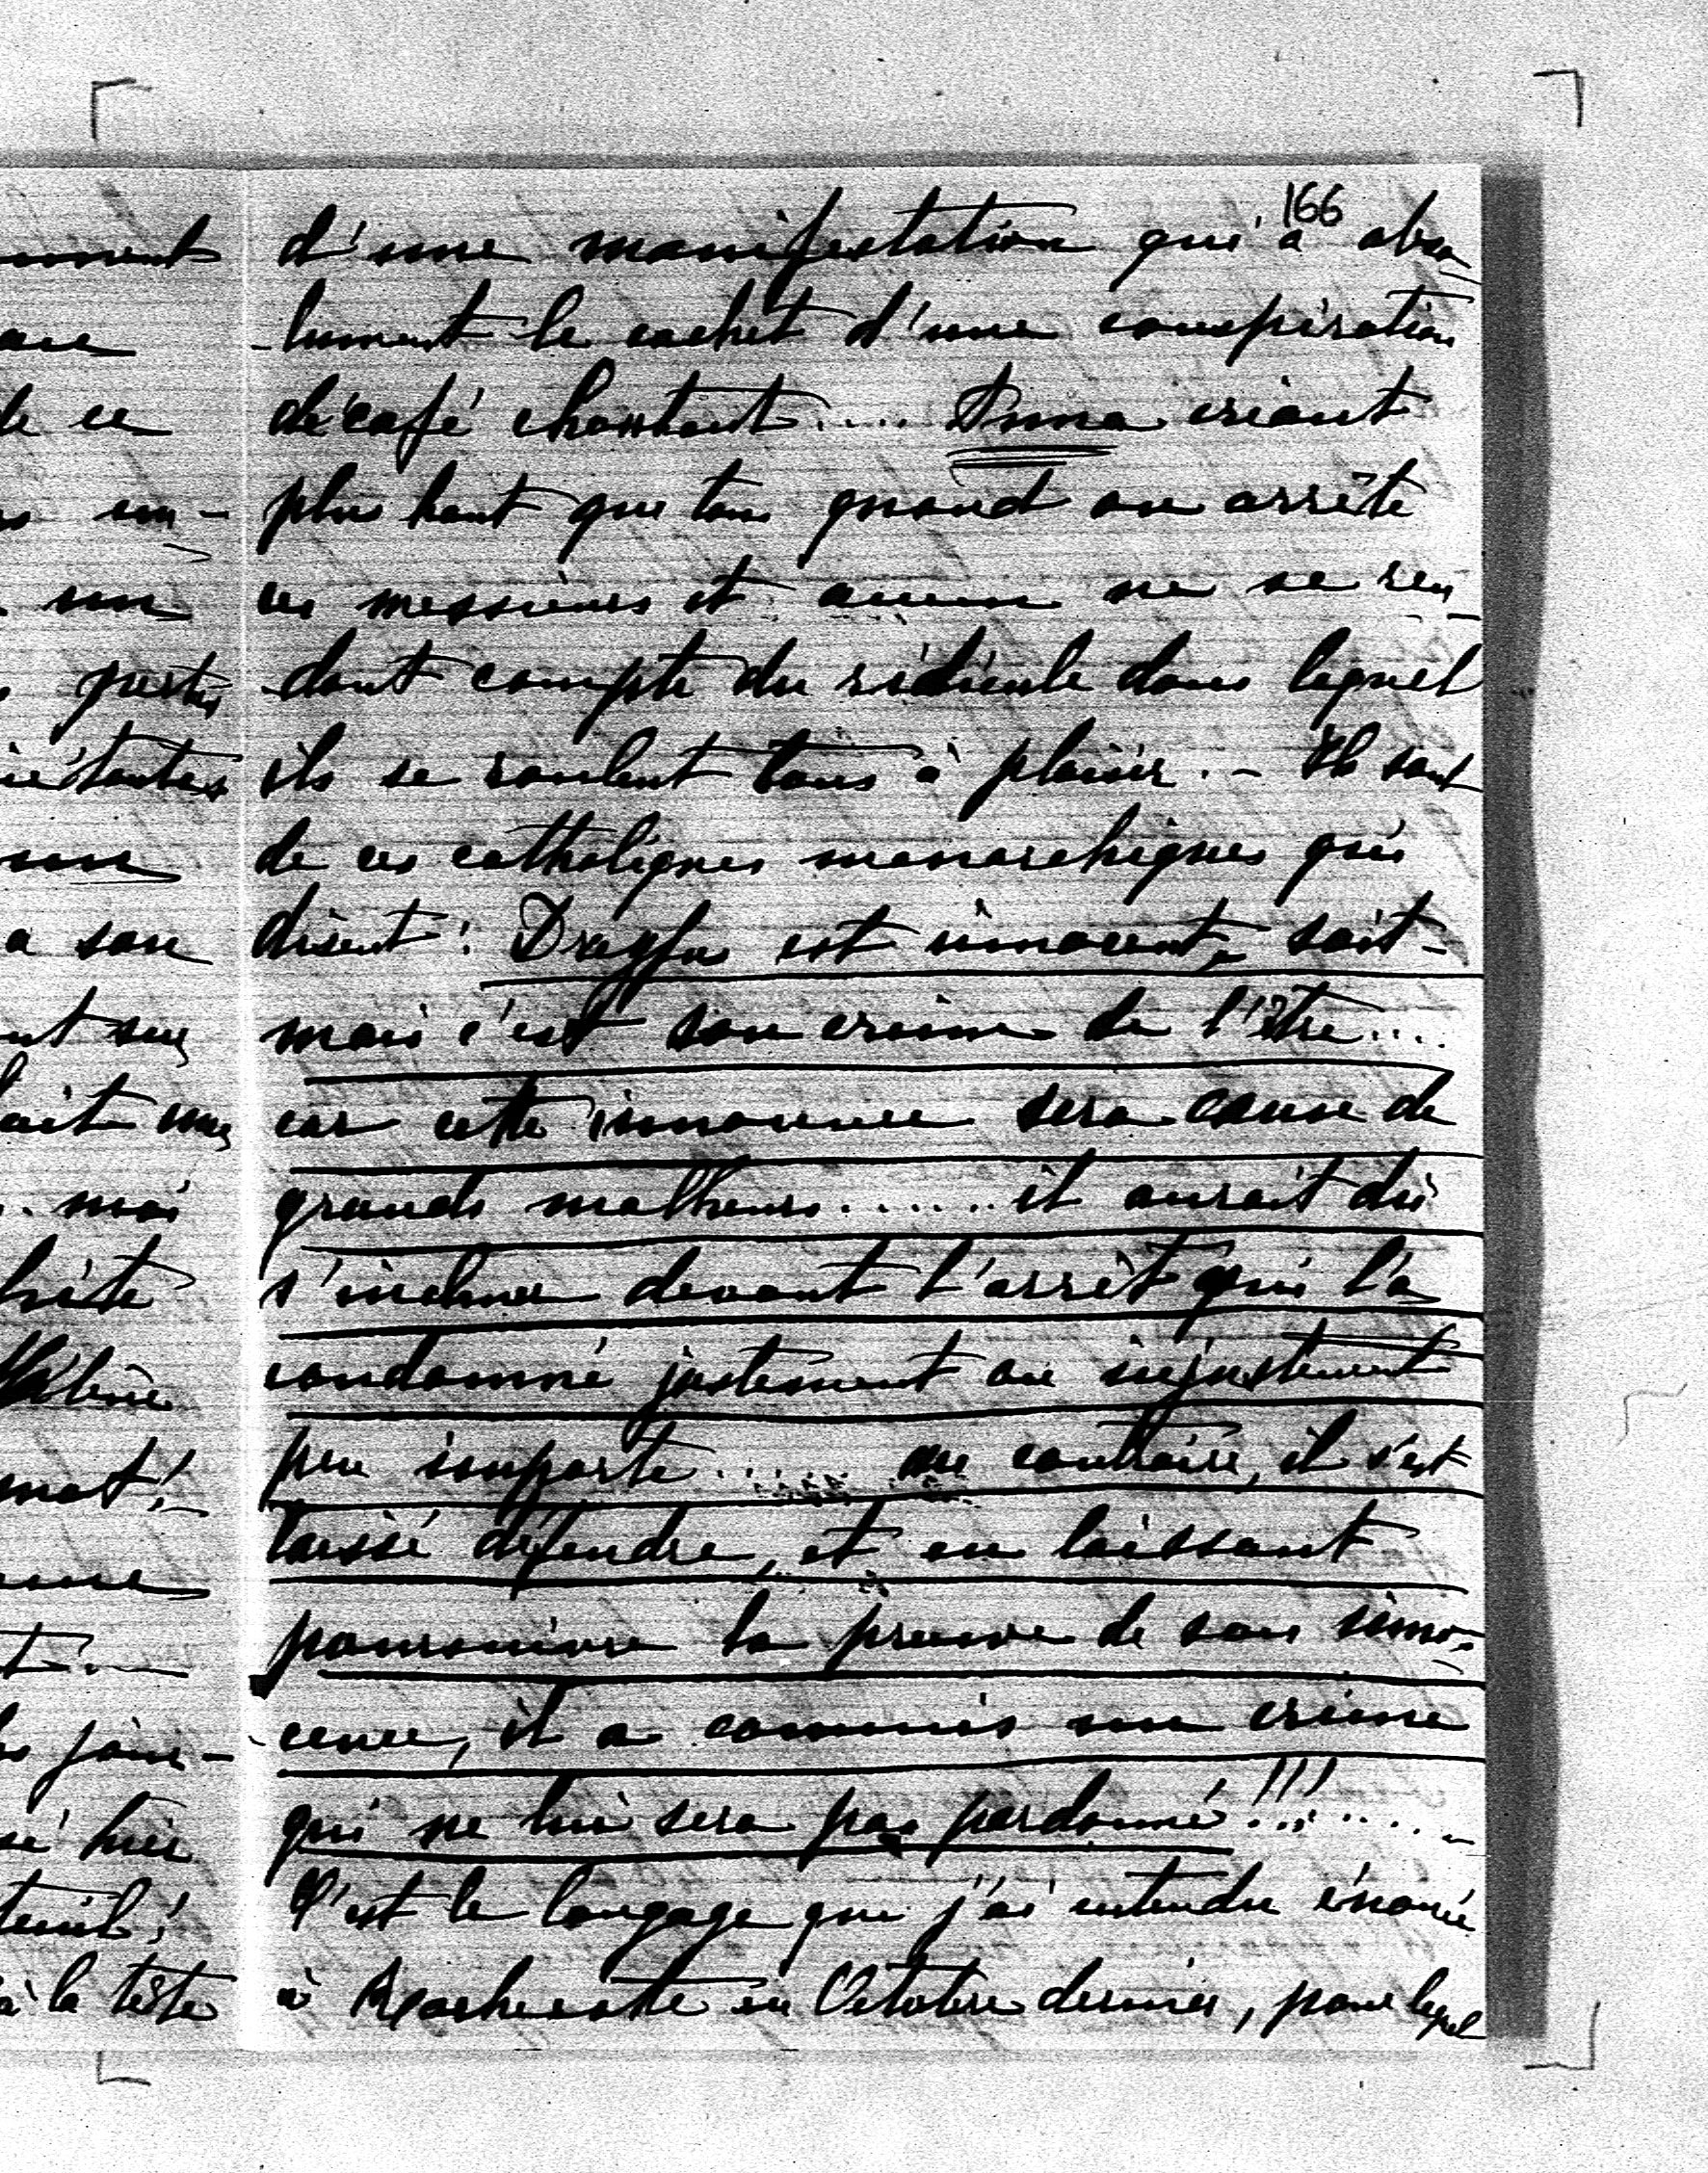 166
d'une manifestation qui a abso-
-lument le cachet d'une conspiration
de café chantant..... Anna criant
plus haut que tous quand on arrête
ces messieurs et aucun ne se ren-
-dant compte du ridicule dans lequel
ils se roulent tous à plaisir. - Ils sont
de ces catholiques monarchiques qui
disent: Dreyfus est innocent, soit -
mais c'est son crime de l'être....
car cette innocence sera cause de
grands malheurs....... il aurait dû
s'incliner devant l'arrêt qui l'a
condamné justement ou injustement
peu importe...... au contraire, il s'est
laissé défendre, et en laissant
poursuivre la preuve de son inno-
-cence, il a commis un crime
qui ne lui sera pas pardonné!!!.....
C'est le langage que j'ai entendu énoncé
à Rochecotte en Octobre dernier, pour lequel
ce
un-
un
mais
hier
à la tête